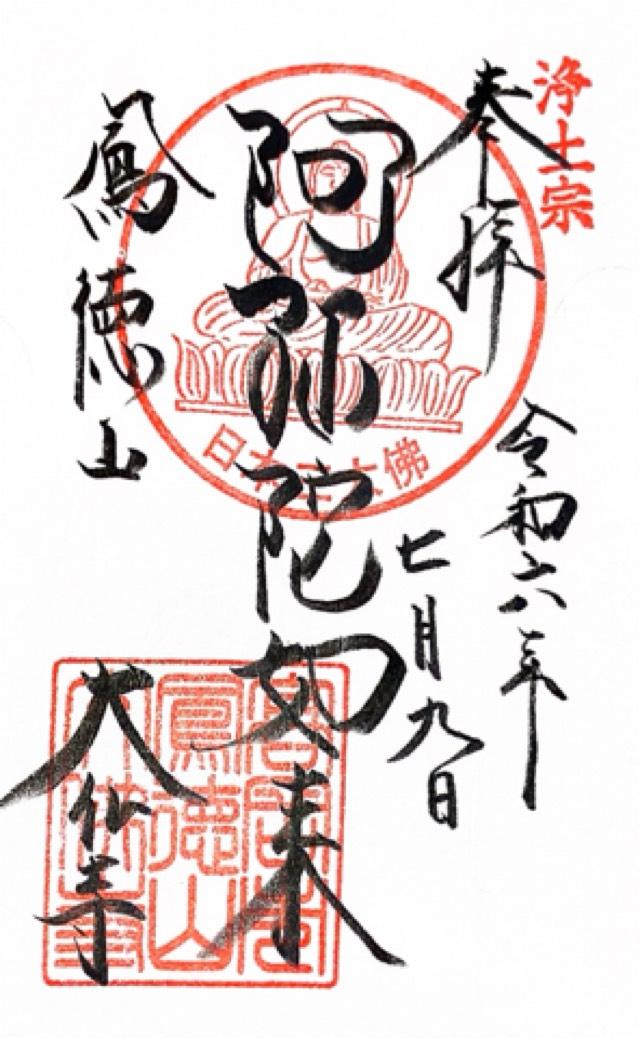 浄土宗
奉拝
令和六年
七月九日
阿弥陀如来
鳳徳山
大仏寺
日本三大佛
高岡山
鳳徳山
大佛寺